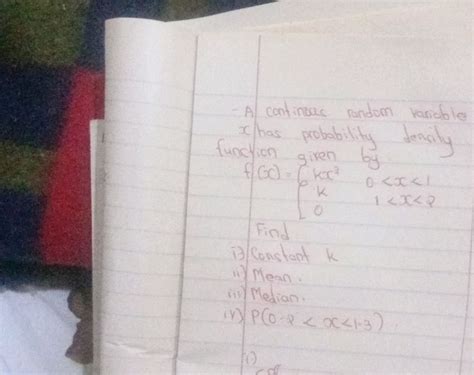 - A continous random variable
x has probability density
function given by
f(x) = { kx² 0<x<1
k 1<x<2
0
Find
i) Constant k
ii) Mean.
iii) Median.
iv) P(0.2 < x < 1.3)
i)